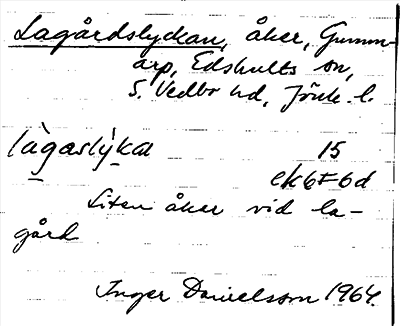 Lagårdslyckan, åker, Gumm-
arp, Edshults sn,
S. Vedbo hd, Jönk. l.
làgaslỳka 15
ek6F6d
Liten åker vid la-
gård
Inger Danielsson 1964.